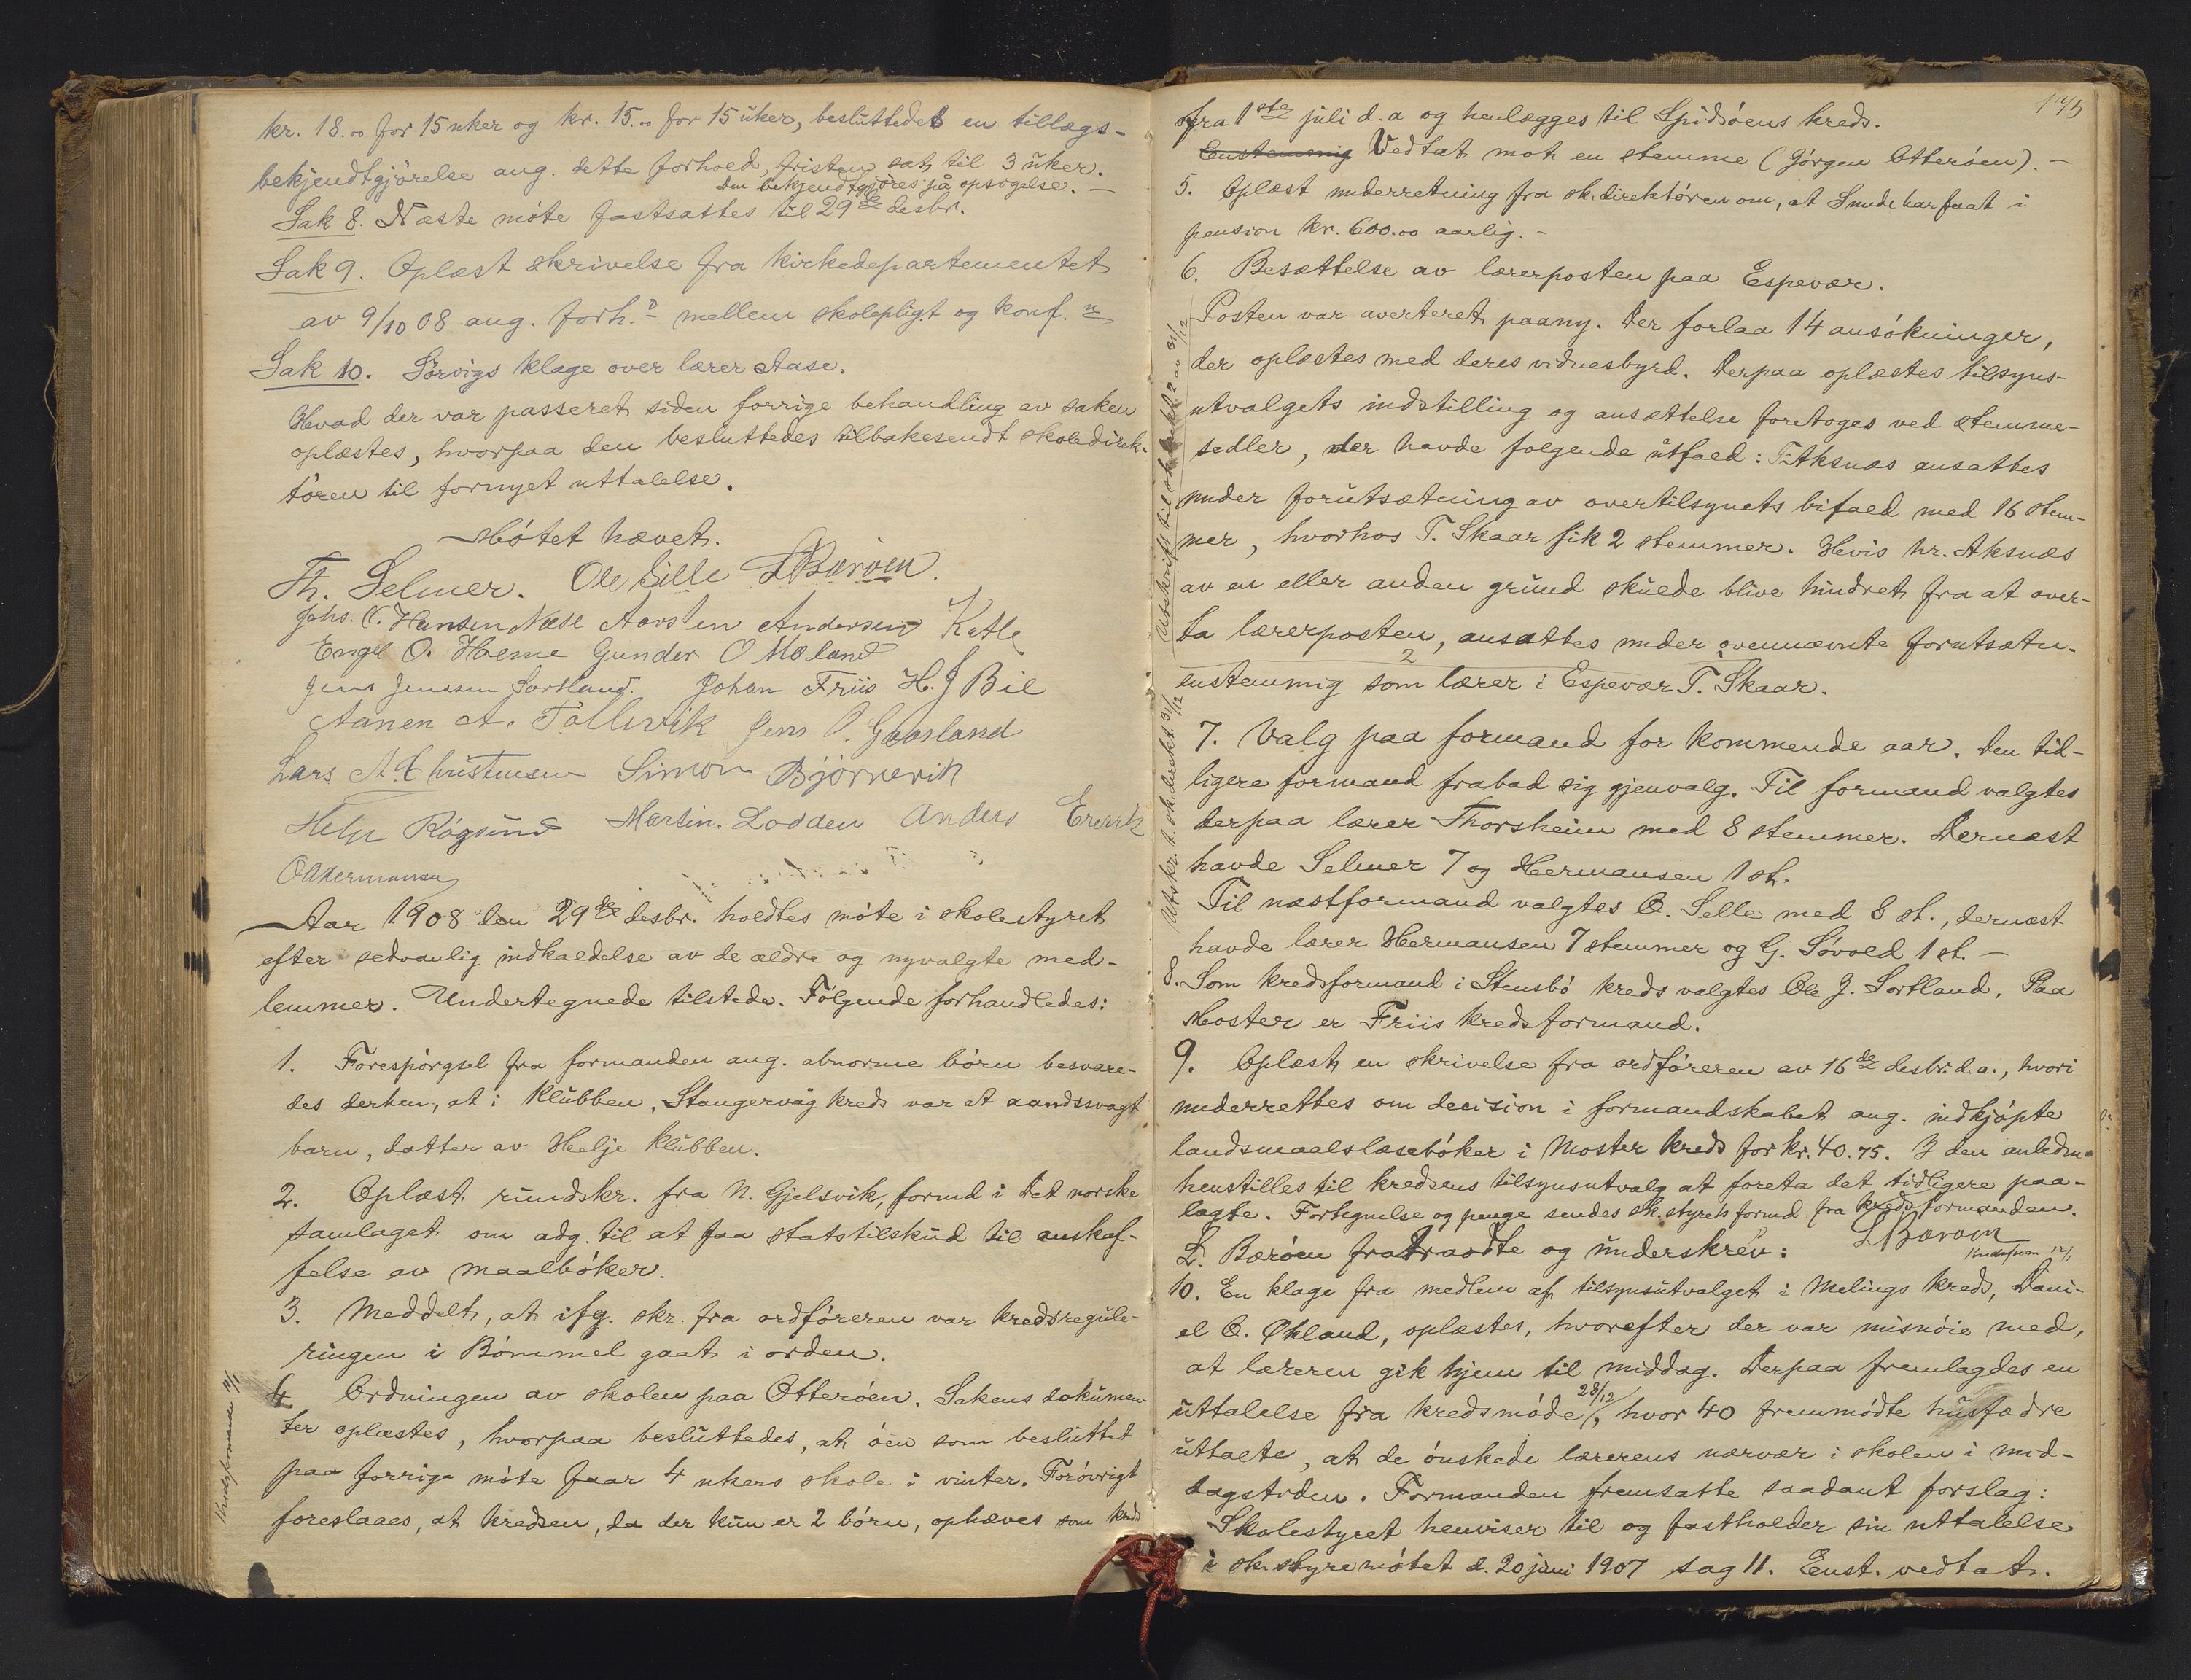 kr. 18.00 for 15 uker og kr. 15.00 for 15 uker, besluttedes en tillægs-
bekjendtgjörelse ang. dette forhold, fristen sat til 3 uker.
Den bekjendtgjöres på opsigelse. –
Sak 8. Næste möte fastsattes til 29de desbr.
Sak 9. Oplæst skrivelse fra kirkedepartementet
av 9/10 08 ang. forh.d mellem skolepligt og konf.n
Sak 10. Sörvigs klage over lærer Aase.
Hvad der var passeret siden forrige behandling av saken
oplæstes, hvorpaa den besluttedes tilbakesendt skoledirek-
tören til fornyet uttalelse.
Mötet hævet.
Th. Selmer. Ole Selle L Bæröen.
Johs. C. Hansen Næse Aorsten Andersen Katle
Engel O. Hovme Gunder O Mæland
Jens Jenssen Sortland. Johan Friis H. J Bie
Aanen A. Tollevik Jens O. Gaasland
Lars A. Christensen Simon Björnevik
Helje Rögsund Martin. Lodden Anders
O Hermansen
Aar 1908 den 29de desbr. holdtes möte i skolestyret
efter sedvanlig indkaldelse av de ældre og nyvalgte med-
lemmer. Undertegnede tilstede. Fölgende forhandledes:
1. Forespörgsel fra formanden ang. abnorme börn besvare-
des derhen, at i Klubben, Stangervåg kreds var et aandssvagt
barn, datter av Helje Klubben.
2. Oplæst rundskr. fra N. Gjelsvik, formd i Det norske
samlaget om adg. til at faa statstilskud til anskaf-
felse av maalböker.
3. Meddelt, at ifg. skr. fra ordföreren var kredsregule-
ringen i Bömmel gaat i orden.
4. Ordningen av skolen paa Otteröen. Sakens dokumen-
ter oplæstes, hvorpaa besluttedes, at öen som besluttet
paa forrige möte faar 4 ukers skole i vinter. Foröwrigt
foreslaaes, at kredsen, da der kun er 2 börn, ophæves som kreds
Kredsformand
fra 1ste juli d.a og henlægges til Spidsöens kreds.
Enstemmig Vedtat mot en stemme (Jörgen Otteröen). –
5. Oplæst underretning fra sk.direktören om, at Sunde har faat i
pension kr. 600.00 aarlig. –
6. Besættelse av lærerposten paa Espevær.
Posten var averteret paany. Der forlaa 14 ansökninger,
der oplæstes med deres vidnesbyrd. Derpaa oplæstes tilsyns-
utvalgets indstilling og ansættelse foretoges ved stemme-
sedler, der havde følgende utfald: T. Aksnæs ansattes
under forutsætning av overtilsynets bifald med 16 stem-
mer, hvorhos T. Skaar fik 2 stemmer. Hvis hr. Aksnæs
av en eller anden grund skulde blive hindret fra at over-
ta lærerposten, ansattes under ovennævnte forutsætn.
2
enstemmig som lærer i Espevær T. Skaar.
7. Valg paa formand for kommende aar. Den tid-
ligere formand frabad sig gjenvalg. Til formand valgtes
derpaa lærer Thorsheim med 8 stemmer. Dernæst
havde Selmer 7 og Hermansen 1 st.
Til næstformand valgtes O. Selle med 8 st., dernæst
havde lærer Hermansen 7 stemmer og G. Sövold 1 st. –
8. Som kredsformand i Stensbö kreds valgtes Ole J. Sortland. Paa
Moster er Friis kredsformand.
9. Oplæst en skrivelse fra ordföreren av 16de desbr. d.a., hvori
underrettes om decision i formandskabet ang. indkjöpte
landsmaalslæseböker i Moster kreds for kr. 40.75. I den anledn.
henstilles til kredsens tilsynsutvalg at foreta det tidligere paa-
lagte. Fortegnelse og penge sendes sk.styrets formd. fra kredsformanden.
L. Bæröen fratraadte og underskrev: L Bæröen
10. En klage fra medlem af tilsynsutvalget i Melings kreds, Dani-
el O. Økland, oplæstes, hvorefter der var misnöie med,
at læreren gik hjem til middag. Derpaa fremlagdes en
uttalelse fra kredsmöde 28/12, hvor 40 fremmödte husfædre
uttalte, at de önskede lærerens nærvær i skolen i mid-
dagstiden. Formanden fremsatte saadant forslag:
Skolestyret henviser til og fastholder sin uttalelse
i sk.styremötet d. 20 juni 1907 sag 11. Enst. vedtat.
Utskr. t. sk.direkt. 31/12